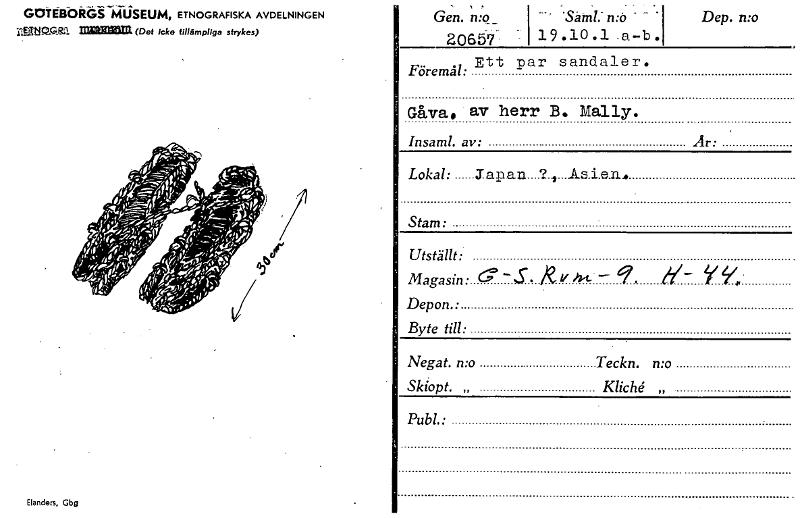 GÖTEBORGS MUSEUM, ETNOGRAFISKA AVDELNINGEN
(Det icke tillämpliga strykes)
30 cm
Elanders, Gbg
Gen. n:o Saml. n:o Dep. n:o
20657 19.10.1 a-b.
Föremål: Ett par sandaler.
Gåva, av herr B. Mally.
Insaml. av: År:
Lokal: Japan ?, Asien.
Stam:
Utställt:
Magasin: G-S. Rum-9. H-44.
Depon.:
Byte till:
Negat. n:o Teckn. n:o
Skiopt. „ Kliché „
Publ.: